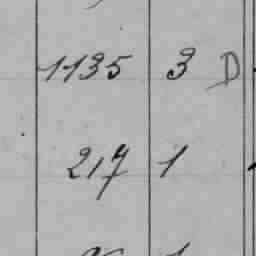 1135 3 D
217 1